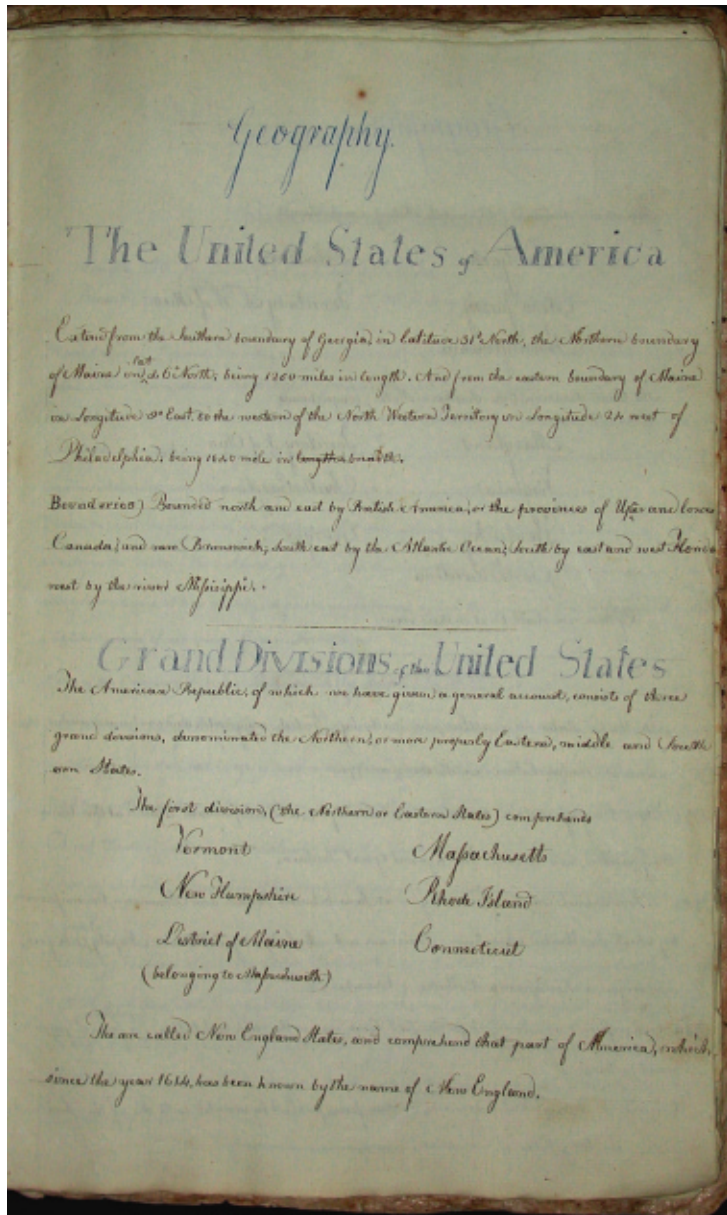 Geography.
The United States of America
Extend from the Southern boundary of Georgia, in latitude 31° North, the Northern boundary
of Maine in lat 46° North; being 1200 miles in length. And from the eastern boundary of Maine
in Longitude 8° East, to the western of the North Western Territory in Longitude 24 west of
Philadelphia. being 1040 mile in length breadth.
Boundaries) Bounded north and east by British America, or the provinces of Upper and lower
Canada, and new Brunswick; south east by the Atlantic Ocean; South by east and west Florida
west by the river Missisippi.
Grand Divisions of the United States
The American Republic, of which we have given a general account, consists of three
grand divisions, denominated the Northern, or more properly Eastern, middle and South
ern States.
The first division, (the Northern or Eastern States) comprehends
Vermont Massachusetts
New Hampshire Rhode Island
District of Maine Connecticut
(belonging to Massachusetts)
The are called New England States, and comprehend that part of America, which,
since the year 1614, has been known by the name of New England.